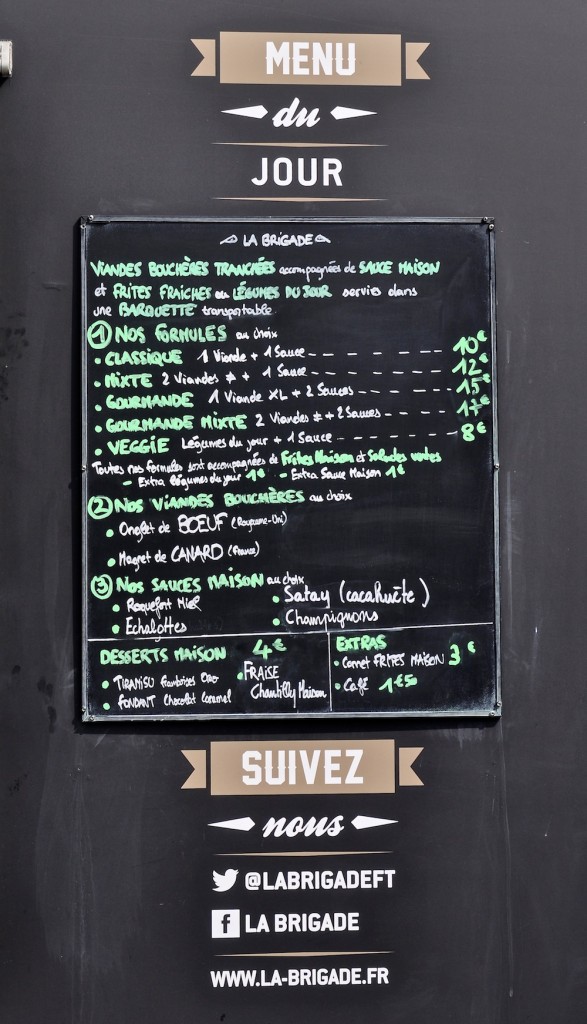 MENU
du
JOUR
LA BRIGADE
VIANDES BOUCHÈRES TRANCHÉES accompagnées de SAUCE MAISON
et FRITES FRAICHES ou LÉGUMES DU JOUR servies dans
une BARQUETTE transportable
1 NOS FORMULES au choix
• CLASSIQUE 1 Viande + 1 Sauce 10€
• MIXTE 2 Viandes ≠ + 1 Sauce 12€
• GOURMANDE 1 Viande XL + 2 Sauces 15€
• GOURMANDE MIXTE 2 Viandes ≠ + 2 Sauces 17€
• VEGGIE Légumes du jour + 1 Sauce 8€
Toutes nos formules sont accompagnées de Frites Maison et Salades vertes
- Extra légumes du jour 1€ - Extra Sauce Maison 1€
2 NOS VIANDES BOUCHÈRES au choix
• Onglet de BOEUF (Royaume-Uni)
• Magret de CANARD (France)
3 NOS SAUCES MAISON au choix
• Roquefort Miel • Satay (cacahuète)
• Echalottes • Champignons
DESSERTS MAISON 4€
• TIRAMISU Framboises Oreo
• FONDANT Chocolat Caramel
• FRAISE
Chantilly Maison
EXTRAS
• Cornet FRITES MAISON 3€
• Café 1€50
SUIVEZ
nous
@LABRIGADEFT
f LA BRIGADE
WWW.LA-BRIGADE.FR